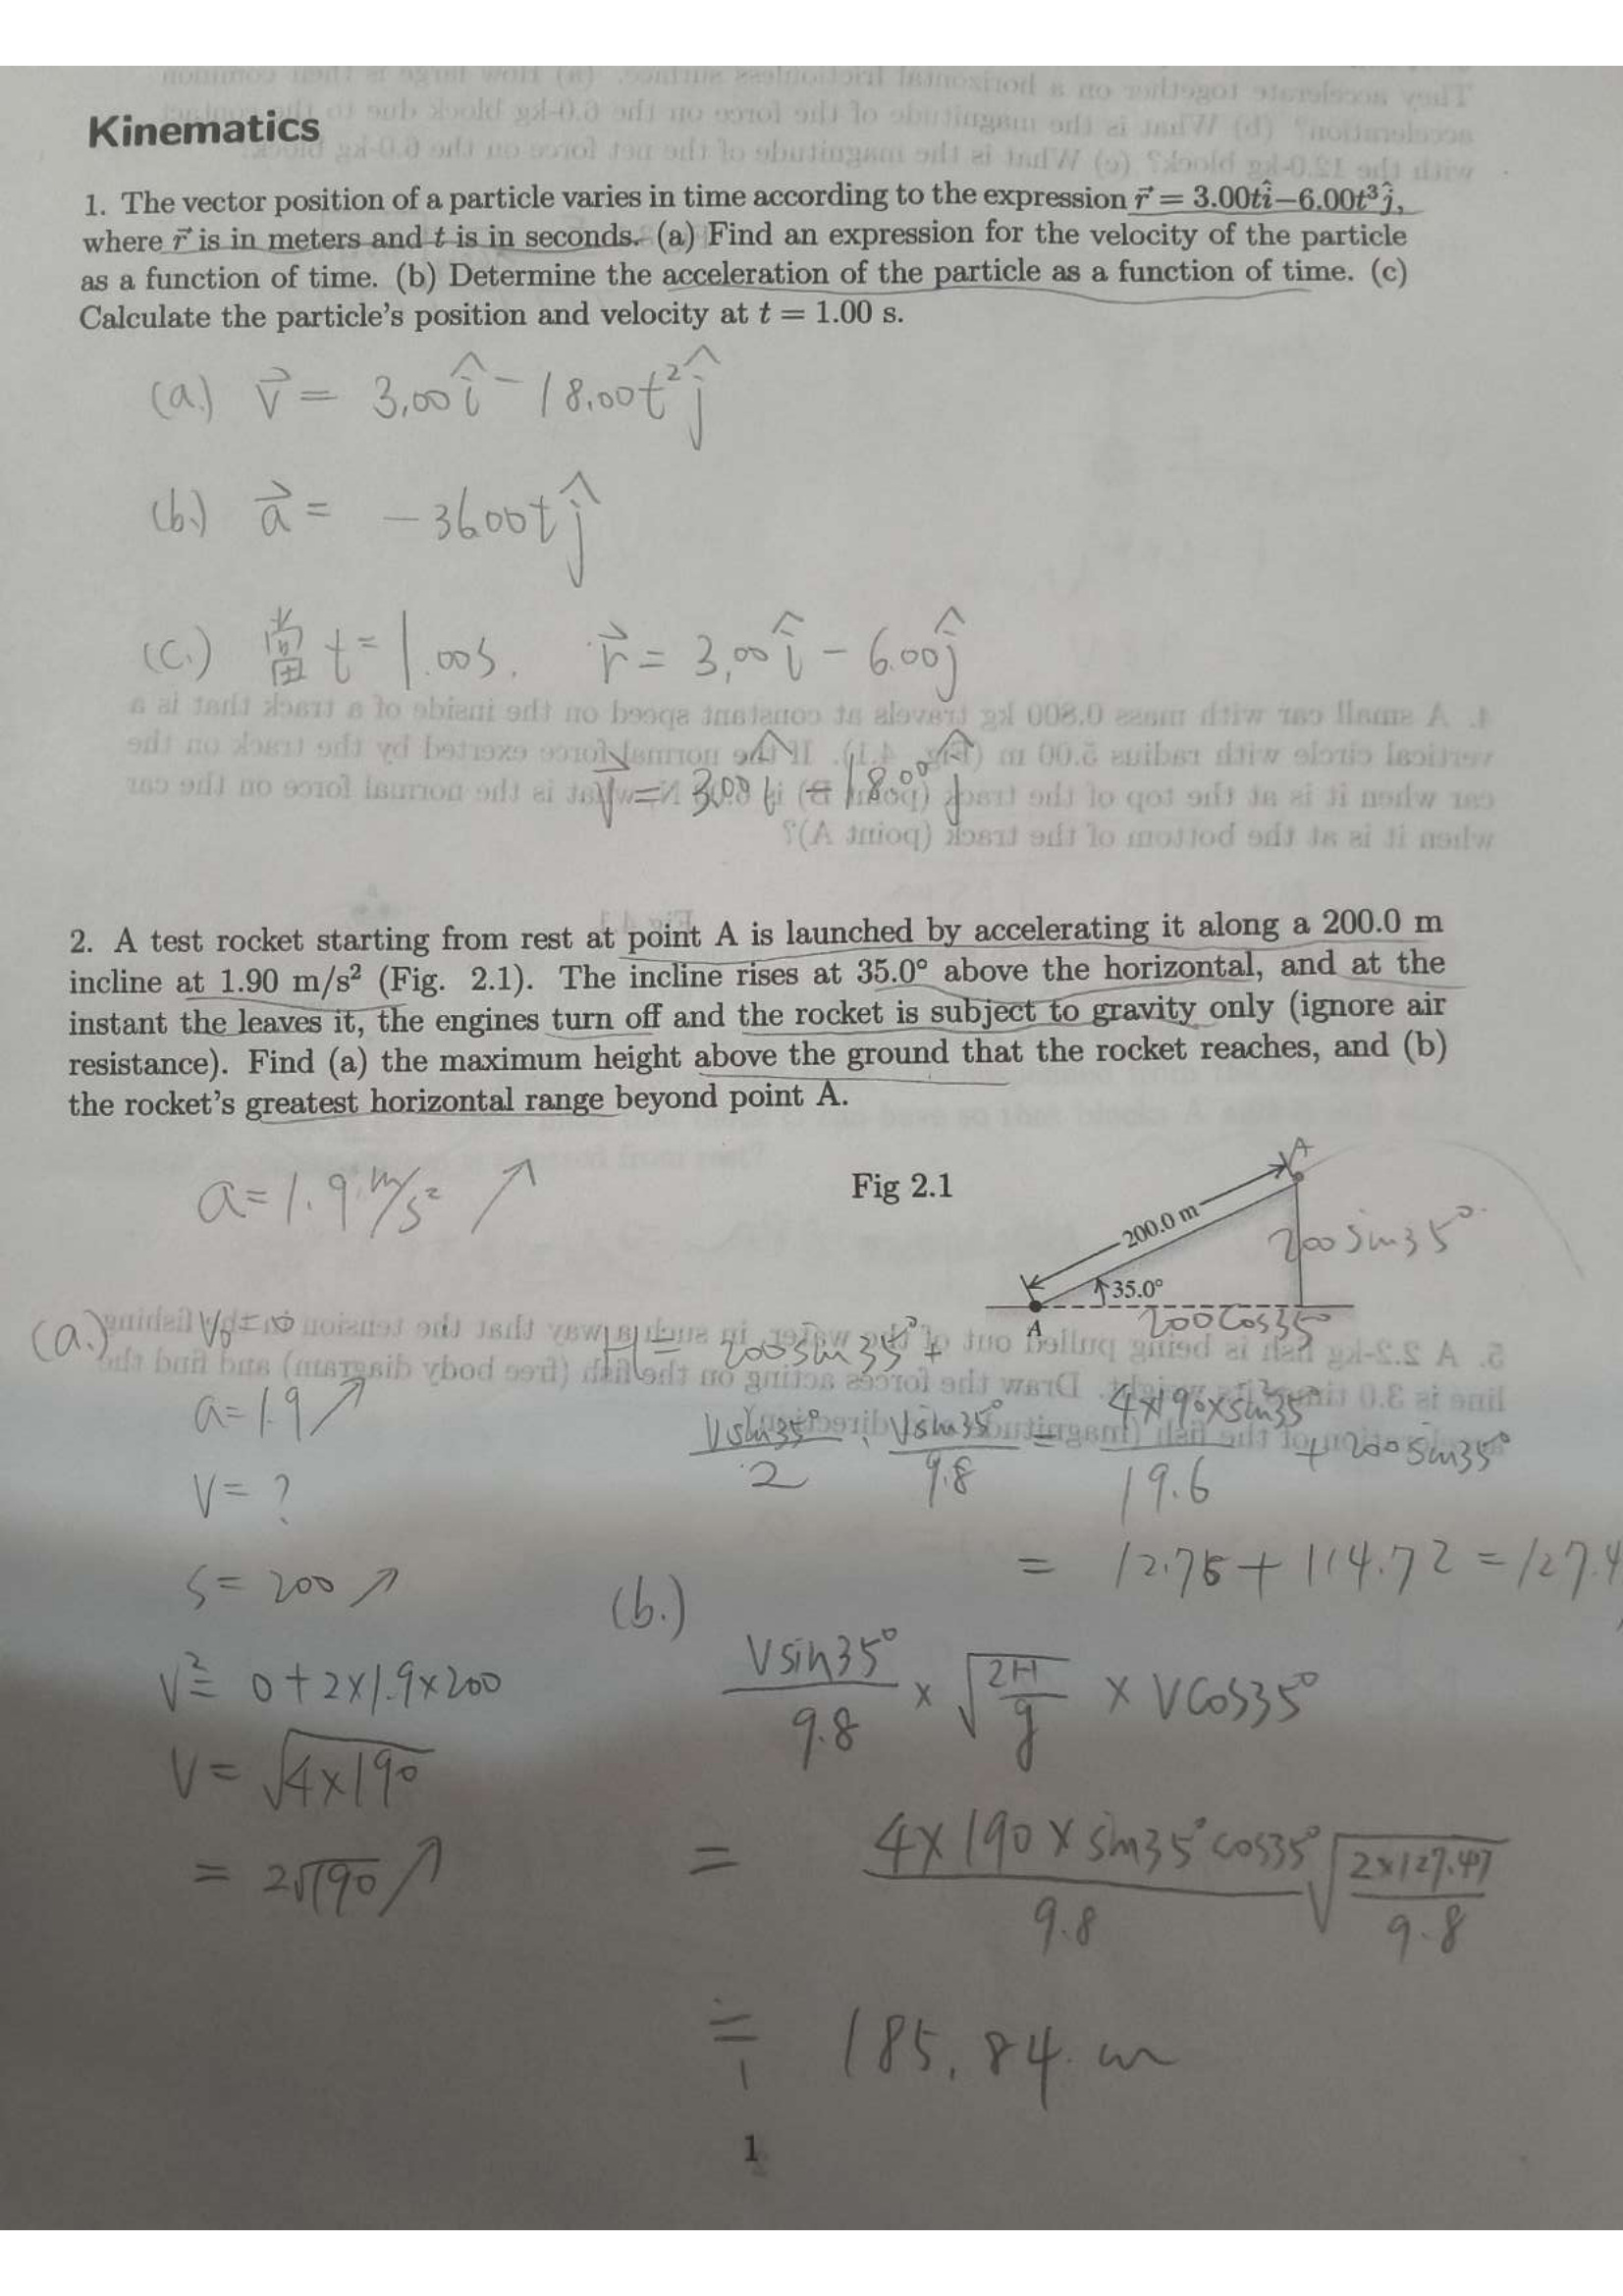 Kinematics
1. The vector position of a particle varies in time according to the expression r⃗ = 3.00tî−6.00t³ĵ,
where r⃗ is in meters and t is in seconds. (a) Find an expression for the velocity of the particle
as a function of time. (b) Determine the acceleration of the particle as a function of time. (c)
Calculate the particle's position and velocity at t = 1.00 s.
(a.) v⃗ = 3.00î − 18.00t²ĵ
(b.) a⃗ = −36.00tĵ
(c.) 當 t = 1.00s. r⃗ = 3.00î − 6.00ĵ
v⃗ = 3.00î − 18.00ĵ
2. A test rocket starting from rest at point A is launched by accelerating it along a 200.0 m
incline at 1.90 m/s² (Fig. 2.1). The incline rises at 35.0° above the horizontal, and at the
instant the leaves it, the engines turn off and the rocket is subject to gravity only (ignore air
resistance). Find (a) the maximum height above the ground that the rocket reaches, and (b)
the rocket's greatest horizontal range beyond point A.
a=1.9 m/s² ↗
Fig 2.1
200.0 m
200sin35°
35.0°
A
200cos35°
(a.) V₀ = 0
a=1.9 ↗
V= ?
S= 200 ↗
V² = 0+2×1.9×200
V= √4×190
= 2√190 ↗
H = 200sin35° +
Vsin35°/2 · Vsin35°/9.8 = 4×190×sin²35°/19.6 + 200sin35°
= 12.75 + 114.72 = 127.4
(b.)
Vsin35°/9.8 × √2H/g × Vcos35°
= 4×190×sin35°cos35°/9.8 √2×127.47/9.8
≒ 185.84 m
1